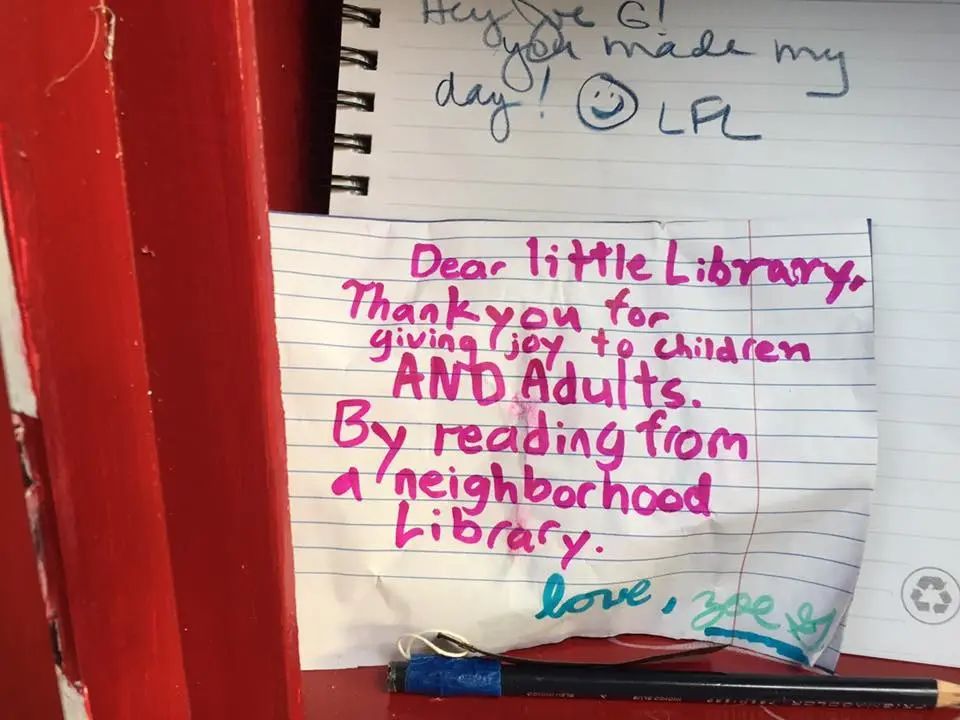 Hey Joe G!
you made my
day! LFL
Dear little Library,
Thank you for
giving joy to children
AND Adults.
By reading from
a neighborhood
Library.
love, zoe
PRISMACOLOR